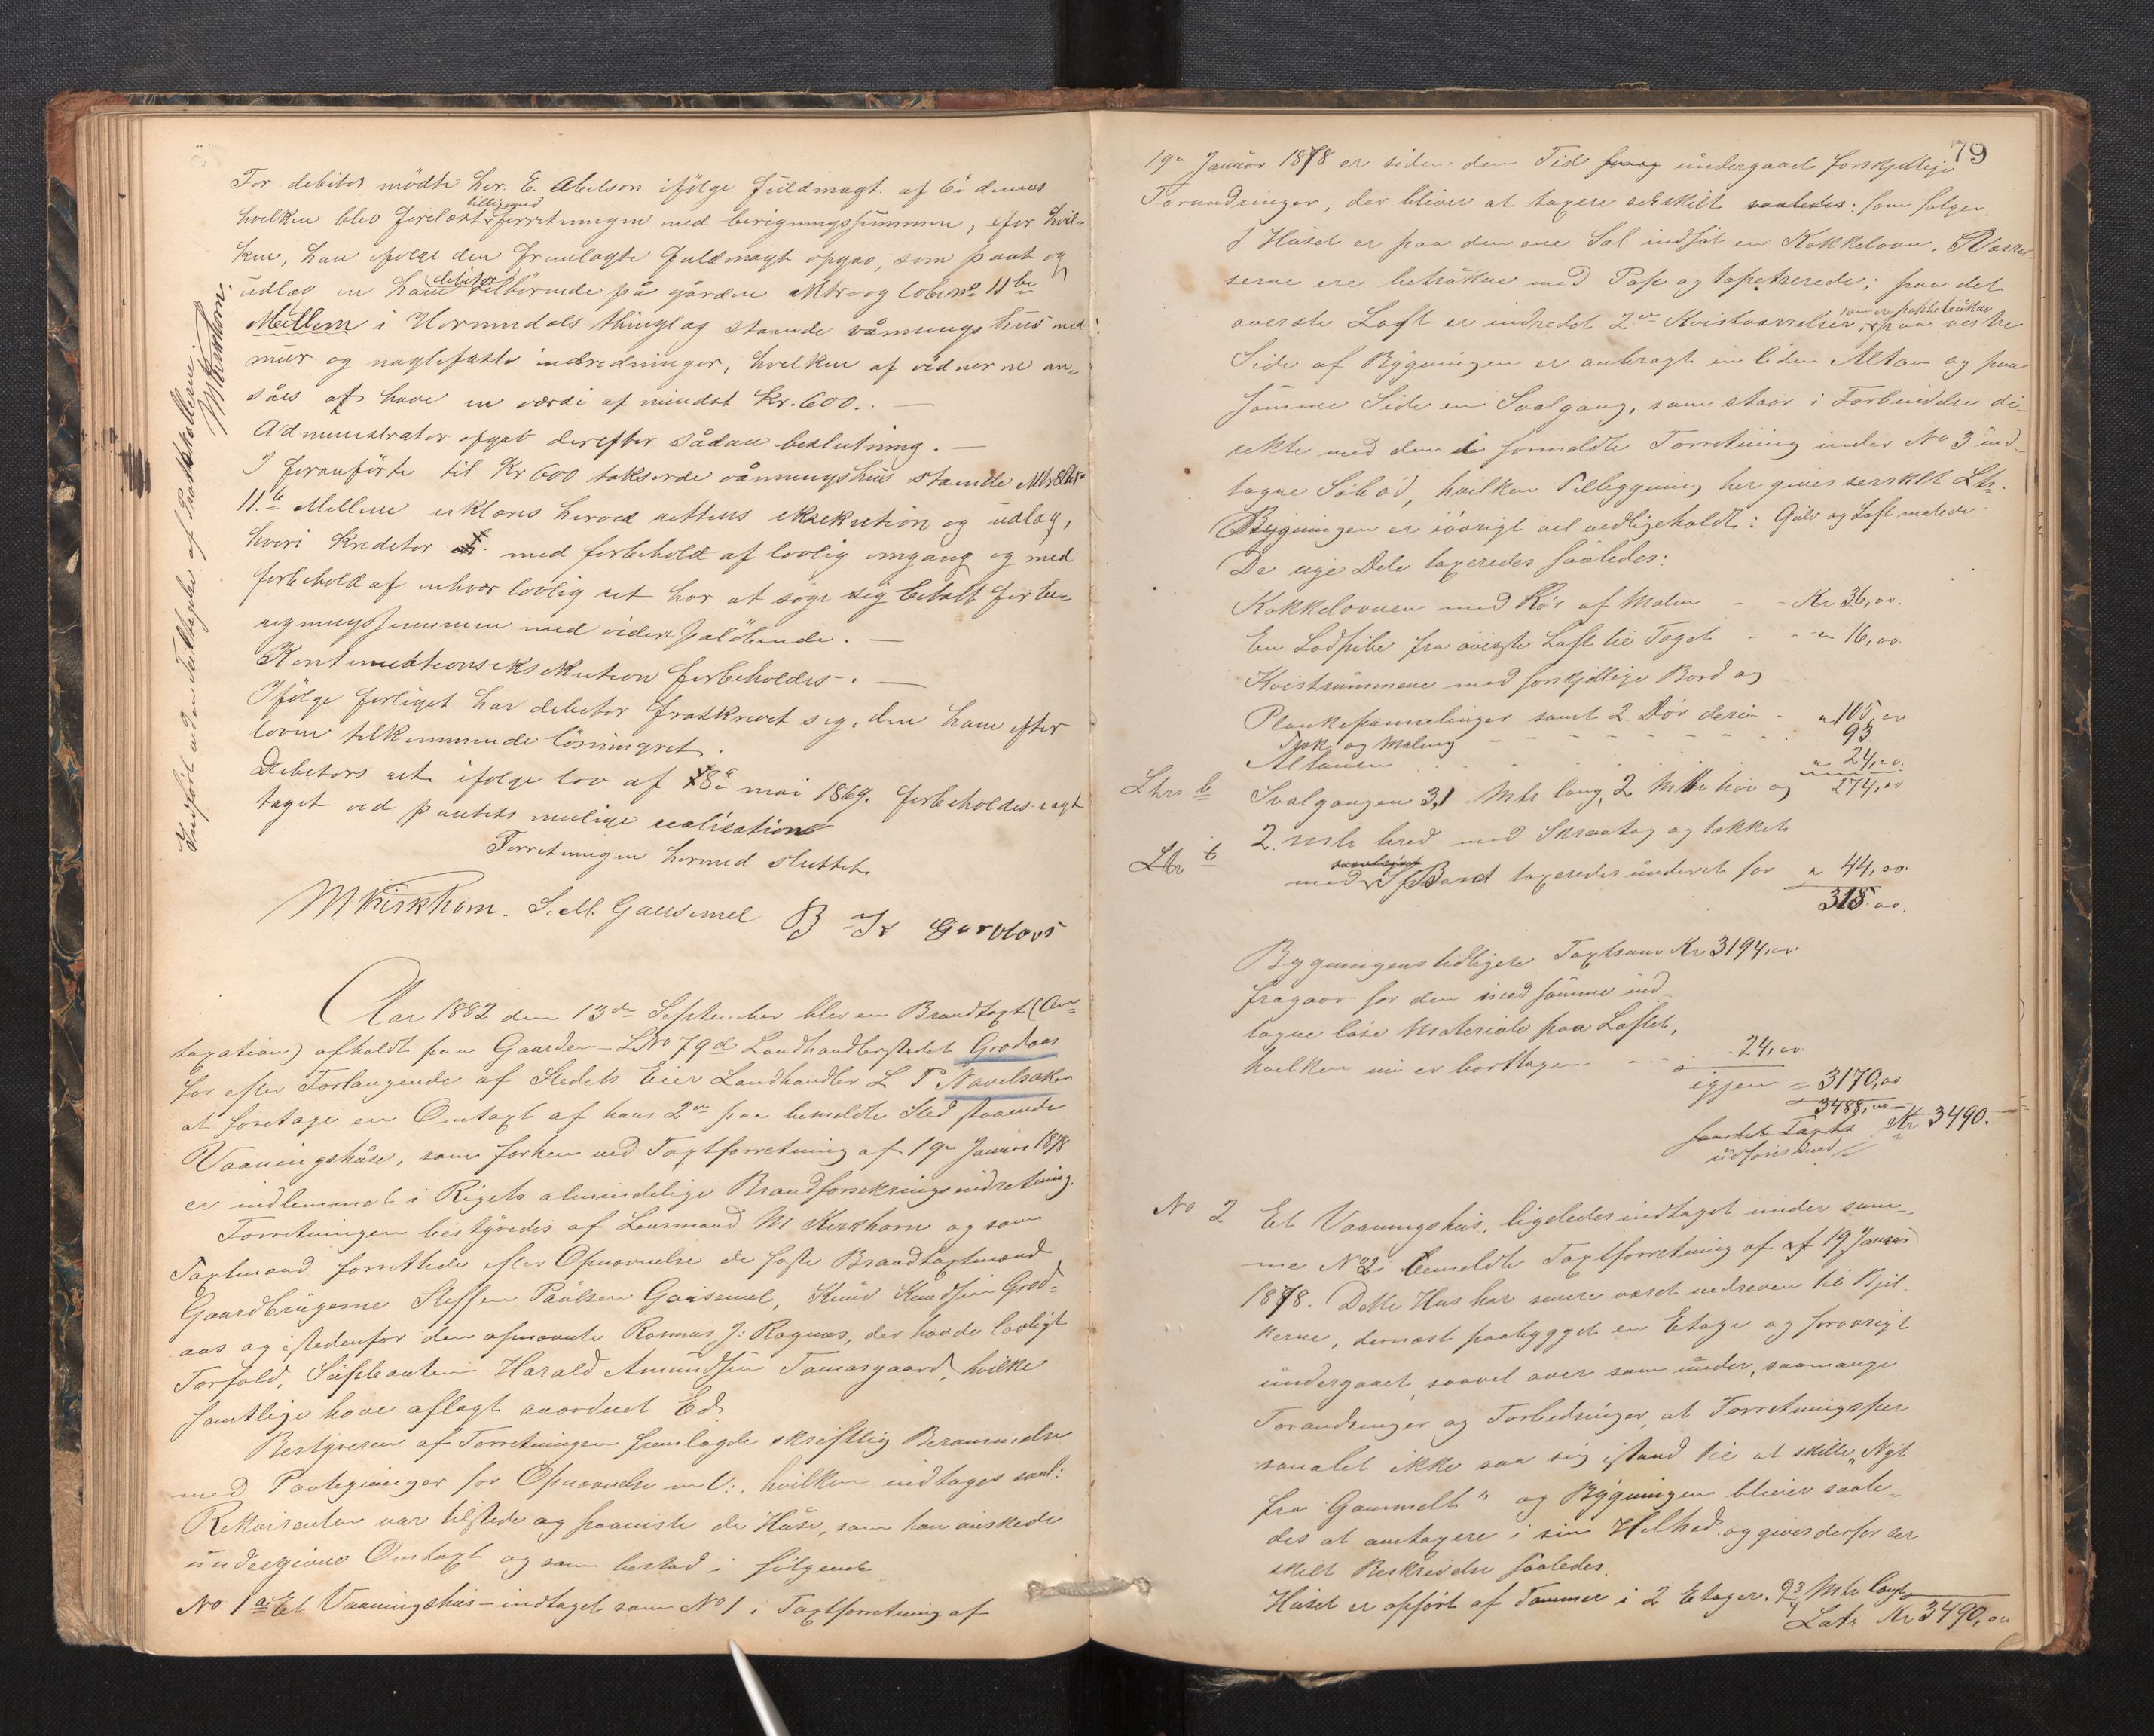 For debitor mødte hr. E. Abelson ifølge fuldmagt af 6te dennes
hvilken blev forelæst tilligemed forretningen med berigningssummen, for hvil-
ken, han ifølge den fremlagte fuldmagt opgav, som pant og
udlæg en ham debitor tilhørende på gården Mtr. og løbe no 11 b
Mellem i Hornindals thinglag stående våningshus med
mur og naglefaste indredninger, hvilken af vidnerne an-
såes at have en værdi af mindst Kr. 600. —
Administrator afgav derefter sådan beslutning. —
I foranførte til Kr 600 takserede våningshus stående
11 b Mellem erklæres herved rettens eksekution og udlæg,
hvori kreditor med forbehold af lovlig omgang og med
forbehold af enhver lovlig ret har at søge sig betalt for be-
rigningssummen med videre påløbende. —
Kontinuationseksekution forbeholdes. —
Ifølge forliget har debitor fraskrevet sig, den ham efter
loven tilkommende løsningsret.
Debitors ret ifølge lov af 8de mai 1869, forbeholdes iagt-
taget ved pantets mulige realisation
Forretningen hermed sluttet.
M Kirkhorn. S. M. Gausemel B
Indført ved en Feiltagelse af Protokollerne.
M Kirkhorn.
Aar 1882 den 13de September blev en Brandtaxt (Om-
taxation) afholdt paa Gaarden LNo 79d Landhandlerstedet Grodaas
for efter Forlangende af Stedets Eier Landhandler L P Navelsaker
at foretage en Omtaxt af hans 2de paa bemeldte Sted staaende
Vaaningshuse, som forhen ved Taxtforretning af 19de Januar 1878
er indlemmet i Rigets almindelige Brandforsikringsindretning.
Forretningen bestyredes af Lensmand M Kirkhorn og som
Taxtmænd forrettede efter Opnævnelse de faste Brandtaxtmænd
Gaardbrugerne Steffen Paulsen Gausemel, Knud Knudsen Grod-
aas og istedenfor den opnævnte Rasmus J. Ragnæs, der havde lovligt
Forfald, Suppleanten Harald Amundsen Tomasgaard, hvilke
samtlige have aflagt anordnet Ed.
Bestyreren af Forretningen fremlagde skriftlig Berammelse
med Paategninger for Opnævnelse m. v., hvilken indtages saal:
Rekvirenten var tilstede og paaviste de Huse, som han ønskede
undergivne Omtaxt og som bestod i følgende
No 1 a Et Vaaningshus indtaget som No 1 i Taxtforretning af
79
19de Januar 1878 er siden den Tid undergaaet forskjellige
Forandringer, der bliver at taxere særskilt saaledes: som følger.
I Huset er paa den ene Sal indsat en Kakkelovn. Værel-
serne ere betrukne med Pap og tapetserede; paa det
øverste Loft er indredet 2de Kvistværelser, som ere papbetrukne paa vestre
Side af Bygningen er anbragt en liden Altan og paa
samme Side en Svalgang, som staar i Forbindelse di-
rekte med den i formeldte Forretning under No 3 ind-
tagne Søbod, hvilken Tilbygning her gives særskilt Ltr.
Bygningen er iøvrigt vel vedligeholdt: Gulv og Loft malede.
De nye Dele taxeredes saaledes:
Kakkelovnen med Rør af Malm - - Kr 36,00.
En Ladpibe fra øverste Loft til Taget - - " 16,00
Kvistrummene med forskjellige Bord og
Plankepannelinger samt 2 Dør deri - " 105,00
Pap og Maling - - - - - - 93
Altanen . . . . . " 24,00.
274,00
Litra b Svalgangen 3,1 Mtr lang, 2 Mtr høi og
2 Mtr bred med Skraatag og takket
Ltr b med Bord taxeredes underet for " 44,00.
318.00.
Bygningens tidligere Taxtsum Kr 3194,00
fragaar for den med samme ind-
tagne løse Materiale paa Loftet,
hvilken nu er borttagen - - - 24,00
igjen = 3170,00
3488,00
Kr 3490.
No 2 Et Vaaningshus, ligeledes indtaget under sam-
me No 2 i bemeldte Taxtforretning af 19 Januar
1878. Dette Hus har senere været nedreven til Bjel-
kerne, dernæst paabygget en Etage og forøvrigt
undergaaet saavel over som under, saamange
Forandringer og Forbedringer, at Forretningsper-
sonalet ikke saa sig istand til at skille „Nyt
fra Gammelt“ og Bygningen bliver saale-
des at omtaxere i sin Helhed og gives derfor sær-
skilt Beskrivelse saaledes.
Huset er opført af Tømmer i 2 Etager. 9 3/4 Mtr langt
Lats Kr 3490,00